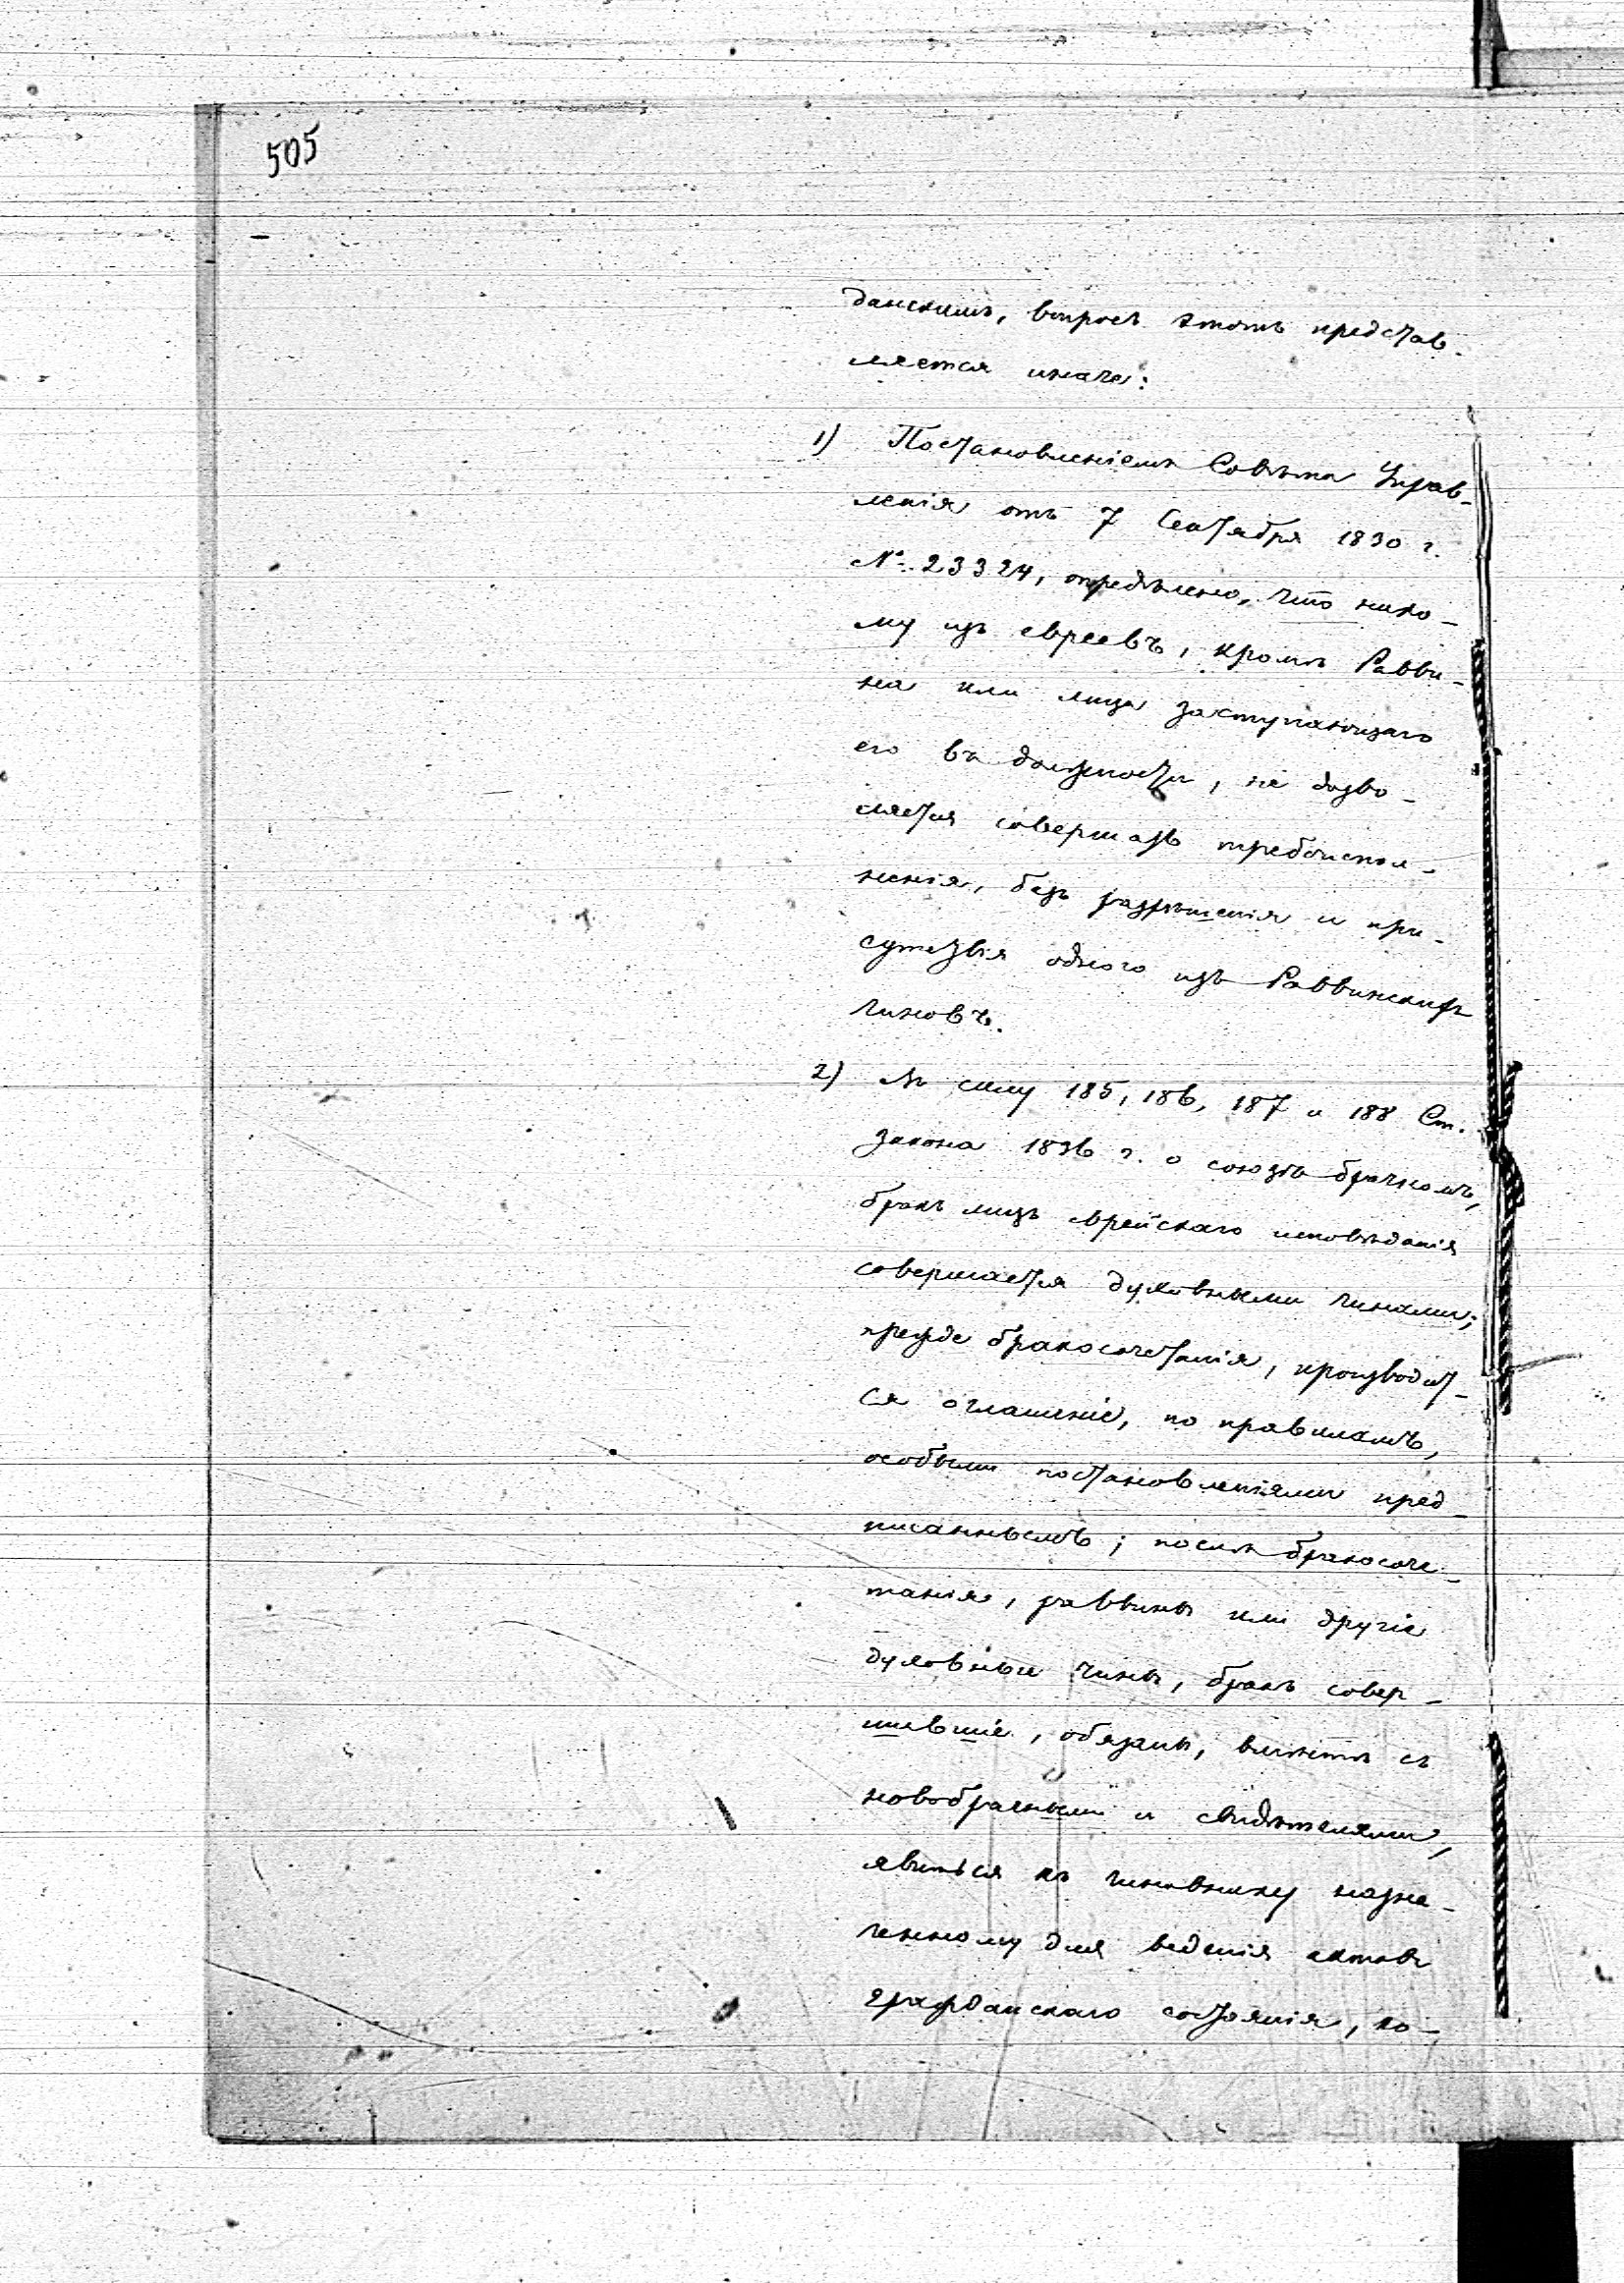 505
данскимъ, вопросъ этотъ представ-
ляется иначе:
1) Постановленіемъ Совѣта Управ-
ленія отъ 7 Сентября 1830 г.
№ 23324, опредѣлено, что нико-
му изъ евреевъ, кромѣ Равви-
на или лица заступающаго
его въ должности, не дозво-
ляется совершать требоиспол-
ненія, безъ разрѣшенія и при-
сутствія одного изъ Раввинскихъ
чиновъ.
2) Въ силу 185, 186, 187 и 188 Ст.
закона 1836 г. о союзѣ брачномъ,
бракъ лицъ еврейскаго исповѣданія
совершается духовными чинами;
прежде бракосочетанія, производит-
ся оглашеніе, по правиламъ,
особыми постановленіями пред-
писаннымъ; послѣ бракосоче-
танія, раввины или другіе
духовные чины, бракъ совер-
шившіе, обязаны, вмѣстѣ съ
новобрачными и свидѣтелями,
явиться къ чиновнику назна-
ченному для веденія актовъ
гражданскаго состоянія, ко-